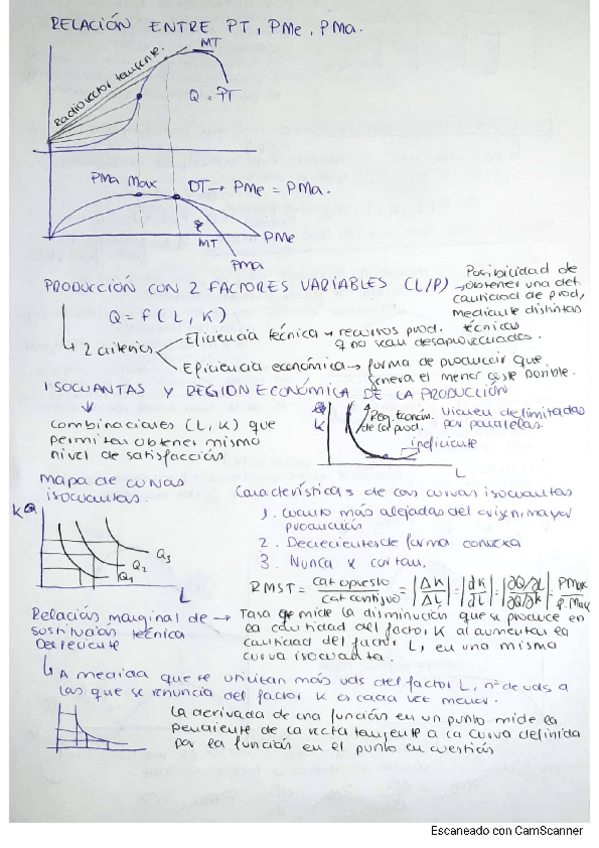 RELACIÓN ENTRE PT, PMe, PMa.
MT
Radiovector tangente.
Q = PT
PMa Max
OT → PMe = PMa.
MT
PMe
PMa
PRODUCCIÓN CON 2 FACTORES VARIABLES (L/P)
Posibilidad de
→ obtener una det.
cantidad de prod,
mediante distintas
técnicas
Q = f(L, K)
2 criterios
Eficiencia técnica → recursos prod.
q no sean desaprovechados.
Eficiencia económica → forma de producir que
genera el menor coste posible.
ISOCUANTAS Y REGION ECONÓMICA DE LA PRODUCCIÓN
combinaciones (L, K) que
permiten obtener mismo
nivel de satisfacción
K
Reg. Económ.
de la prod.
Vienen delimitadas
por paralelas.
ineficiente
L
Mapa de curvas
isocuantas.
K
Q3
Q2
Q1
L
Características de las curvas isocuantas
1. cuanto más alejadas del origen, mayor
producción
2. Decrecientes de forma convexa
3. Nunca x cortan,
RMST = cat opuesto / cat contiguo = |ΔK/ΔL| = |dK/dL| = |∂Q/∂L / ∂Q/∂K| = PMaL / PMaK
Relación marginal de →
sustitución técnica
Decreciente
Tasa que mide la disminución que se produce en
la cantidad del factor K al aumentar la
cantidad del factor L, en una misma
curva isocuanta.
A medida que se utilizan más uds del factor L, nº de uds a
las que se renuncia del factor K es cada vez menor.
La derivada de una función en un punto mide la
pendiente de la recta tangente a la curva definida
por la función en el punto en cuestión
Escaneado con CamScanner